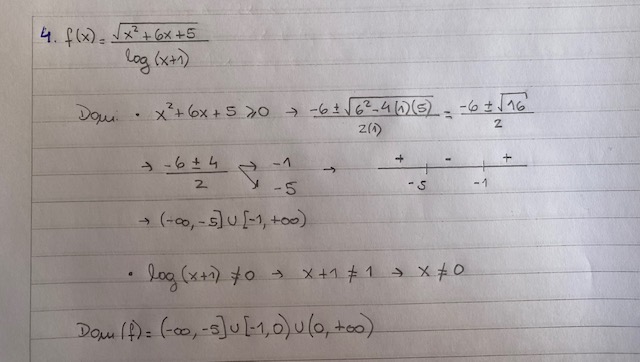 4. f(x) = √(x² + 6x + 5) / log(x+1)
Dom: • x² + 6x + 5 ⩾ 0 → (-6 ± √(6² - 4(1)(5))) / 2(1) = (-6 ± √16) / 2
→ (-6 ± 4) / 2 → -1 ↘ -5 → + -5 - -1 +
→ (-∞, -5] ∪ [-1, +∞)
• log(x+1) ≠ 0 → x+1 ≠ 1 → x ≠ 0
Dom(f) = (-∞, -5] ∪ [-1, 0) ∪ (0, +∞)